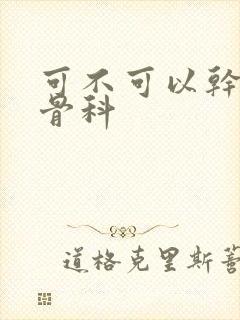 可不可以幹
骨科
道格克里斯